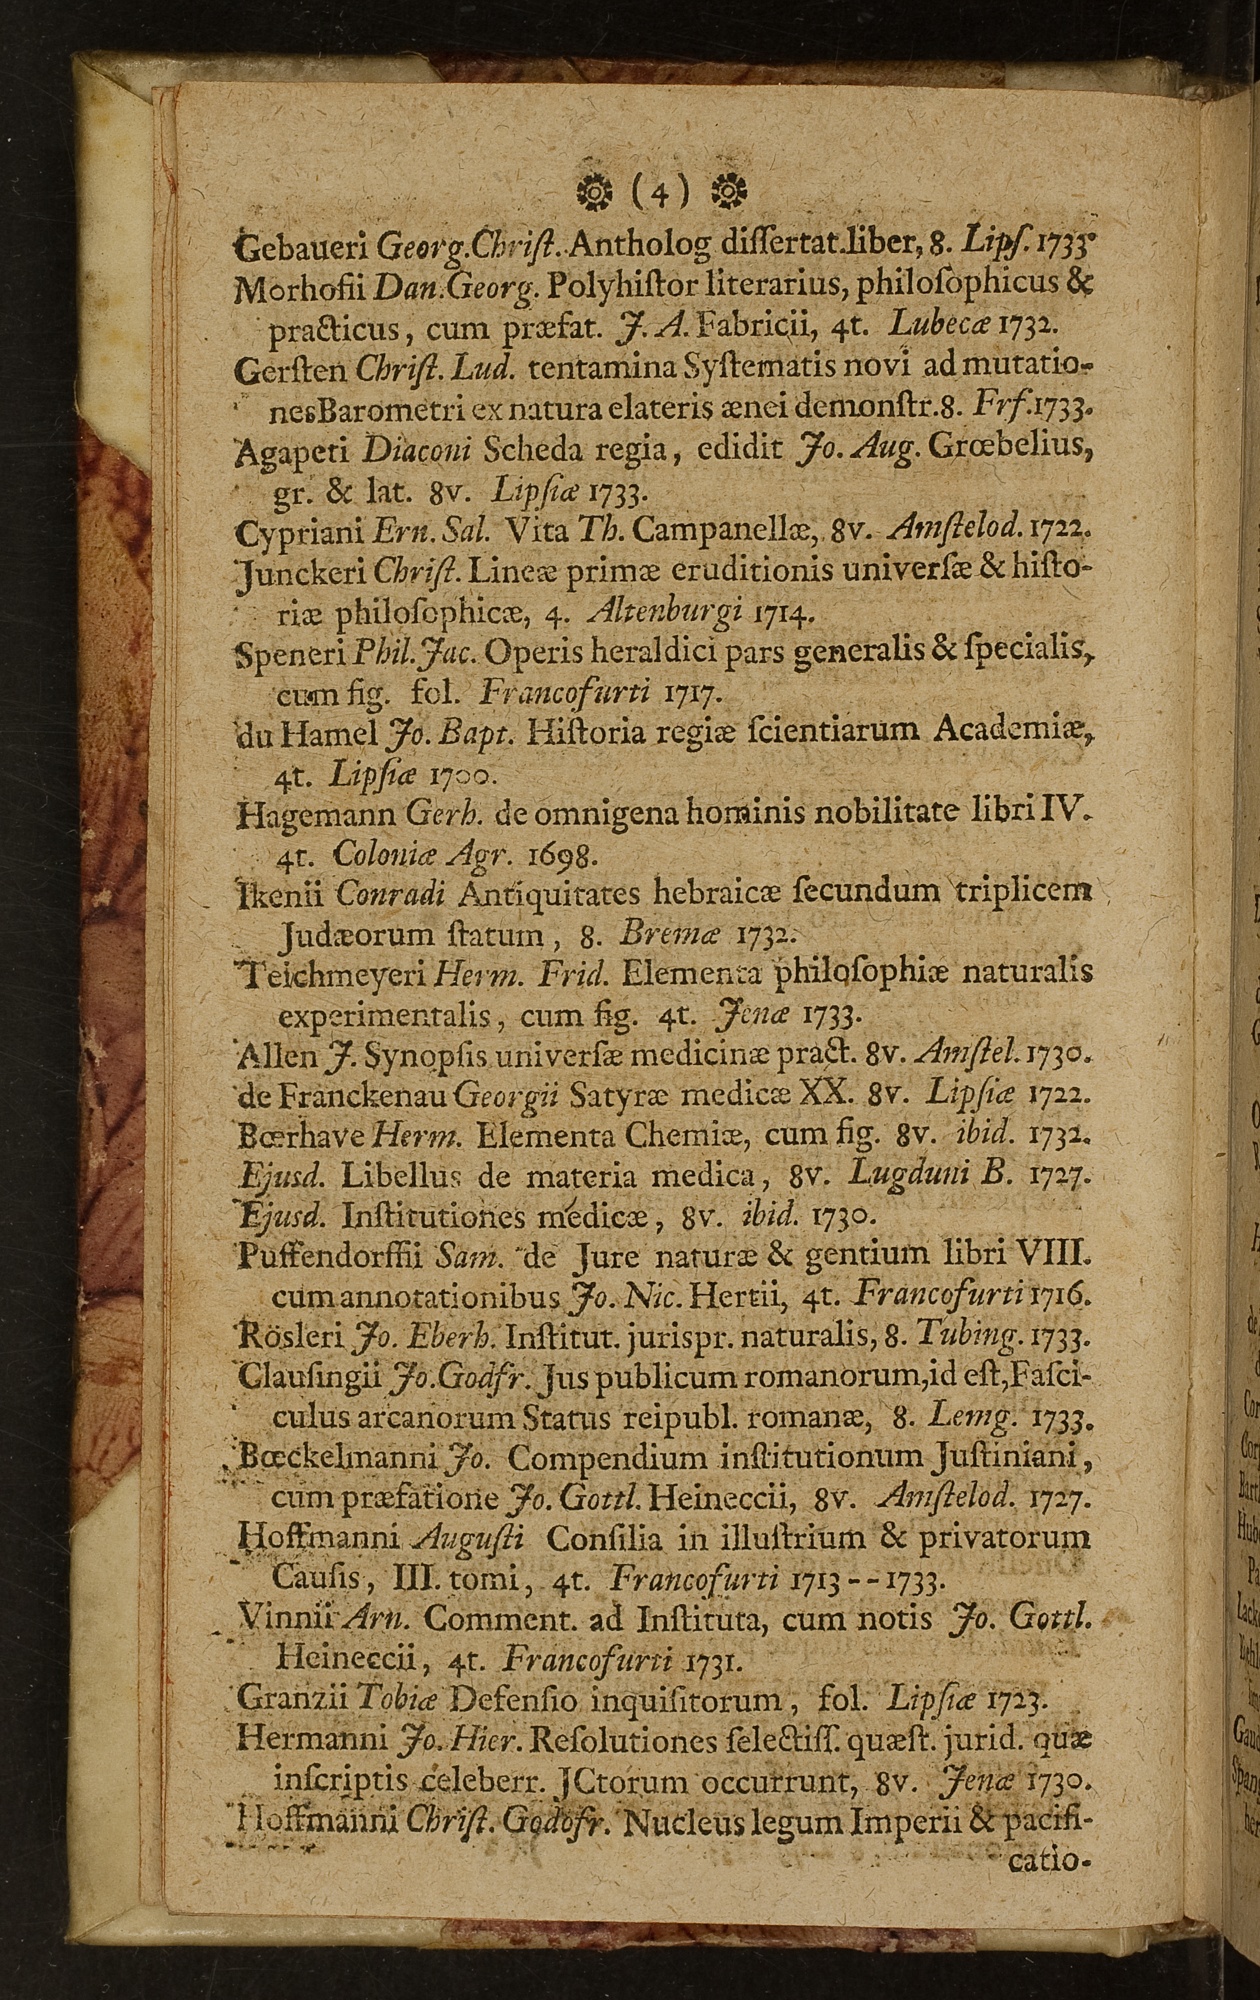 (4)
Gebaueri Georg.Chriſt. Antholog diſſertat.liber, 8. Lipſ. 1733.
Morhofii Dan.Georg. Polyhiſtor literarius, philoſophicus &
practicus, cum præfat. J. A. Fabricii, 4t. Lubecæ 1732.
Gerſten Chriſt. Lud. tentamina Syſtematis novi ad mutatio-
nesBarometri ex natura elateris ænei demonſtr.8. Frf.1733.
Agapeti Diaconi Scheda regia, edidit Jo. Aug. Grœbelius,
gr. & lat. 8v. Lipſiæ 1733.
Cypriani Ern. Sal. Vita Th. Campanellæ, 8v. Amſtelod. 1722.
Junckeri Chriſt. Lineæ primæ eruditionis univerſæ & hiſto-
riæ philoſophicæ, 4. Altenburgi 1714.
Speneri Phil. Jac. Operis heraldici pars generalis & ſpecialis,
cum fig. fol. Francofurti 1717.
du Hamel Jo. Bapt. Hiſtoria regiæ ſcientiarum Academiæ,
4t. Lipſiæ 1700.
Hagemann Gerh. de omnigena hominis nobilitate libri IV.
4t. Coloniæ Agr. 1698.
Ikenii Conradi Antiquitates hebraicæ ſecundum triplicem
Judæorum ſtatum, 8. Bremæ 1732.
Teichmeyeri Herm. Frid. Elementa philoſophiæ naturalis
experimentalis, cum fig. 4t. Jenæ 1733.
Allen J. Synopſis univerſæ medicinæ pract. 8v. Amſtel. 1730.
de Franckenau Georgii Satyræ medicæ XX. 8v. Lipſiæ 1722.
Bœrhave Herm. Elementa Chemiæ, cum fig. 8v. ibid. 1732.
Ejusd. Libellus de materia medica, 8v. Lugduni B. 1727.
Ejusd. Inſtitutiones medicæ, 8v. ibid. 1730.
Puffendorffii Sam. de Jure naturæ & gentium libri VIII.
cum annotationibus Jo. Nic. Hertii, 4t. Francofurti 1716.
Rösleri Jo. Eberh. Inſtitut. jurispr. naturalis, 8. Tubing. 1733.
Clauſingii Jo.Godfr. Jus publicum romanorum,id eſt,Faſci-
culus arcanorum Status reipubl. romanæ, 8. Lemg. 1733.
Bœckelmanni Jo. Compendium inſtitutionum Juſtiniani,
cum præfatione Jo. Gottl. Heineccii, 8v. Amſtelod. 1727.
Hoffmanni Auguſti Conſilia in illuſtrium & privatorum
Cauſis, III. tomi, 4t. Francofurti 1713--1733.
Vinnii Arn. Comment. ad Inſtituta, cum notis Jo. Gottl.
Heineccii, 4t. Francofurti 1731.
Granzii Tobiæ Defenſio inquiſitorum, fol. Lipſiæ 1723.
Hermanni Jo. Hier. Reſolutiones ſelectiſſ. quæſt. jurid. quæ
inſcriptis celeberr. JCtorum occurrunt, 8v. Jenæ 1730.
Hoffmanni Chriſt. Godofr. Nucleus legum Imperii & pacifi-
catio-